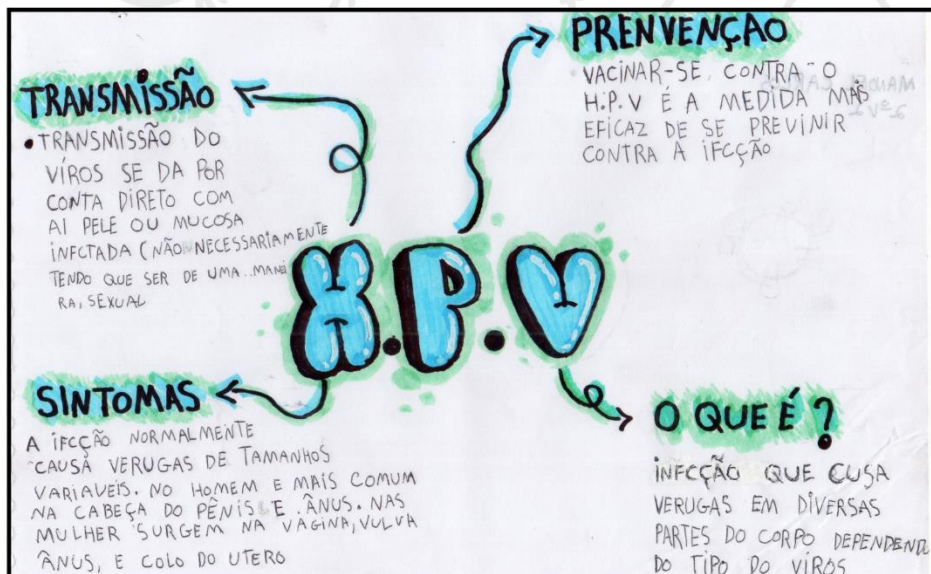 TRANSMISSÃO
• TRANSMISSÃO DO
VÍROS SE DA POR
CONTA DIRETO COM
AI PELE OU MUCOSA
INFCTADA (NÃO NECESSARIAMENTE
TENDO QUE SER DE UMA MANEI
RA, SEXUAL
PRENVENÇAO
VACINAR-SE CONTRA O
H.P.V É A MEDIDA MAS
EFICAZ DE SE PREVINIR
CONTRA A IFCÇÃO
H.P.V
SINTOMAS
A IFCÇÃO NORMALMENTE
CAUSA VERUGAS DE TAMANHOS
VARIAVEIS. NO HOMEM E MAIS COMUM
NA CABEÇA DO PÊNIS E ÂNUS. NAS
MULHER SURGEM NA VAGINA, VULVA
ÂNUS, E COLO DO UTERO
O QUE É ?
INFCÇÃO QUE CUSA
VERUGAS EM DIVERSAS
PARTES DO CORPO DEPENDEND
DO TIPO DO VÍROS